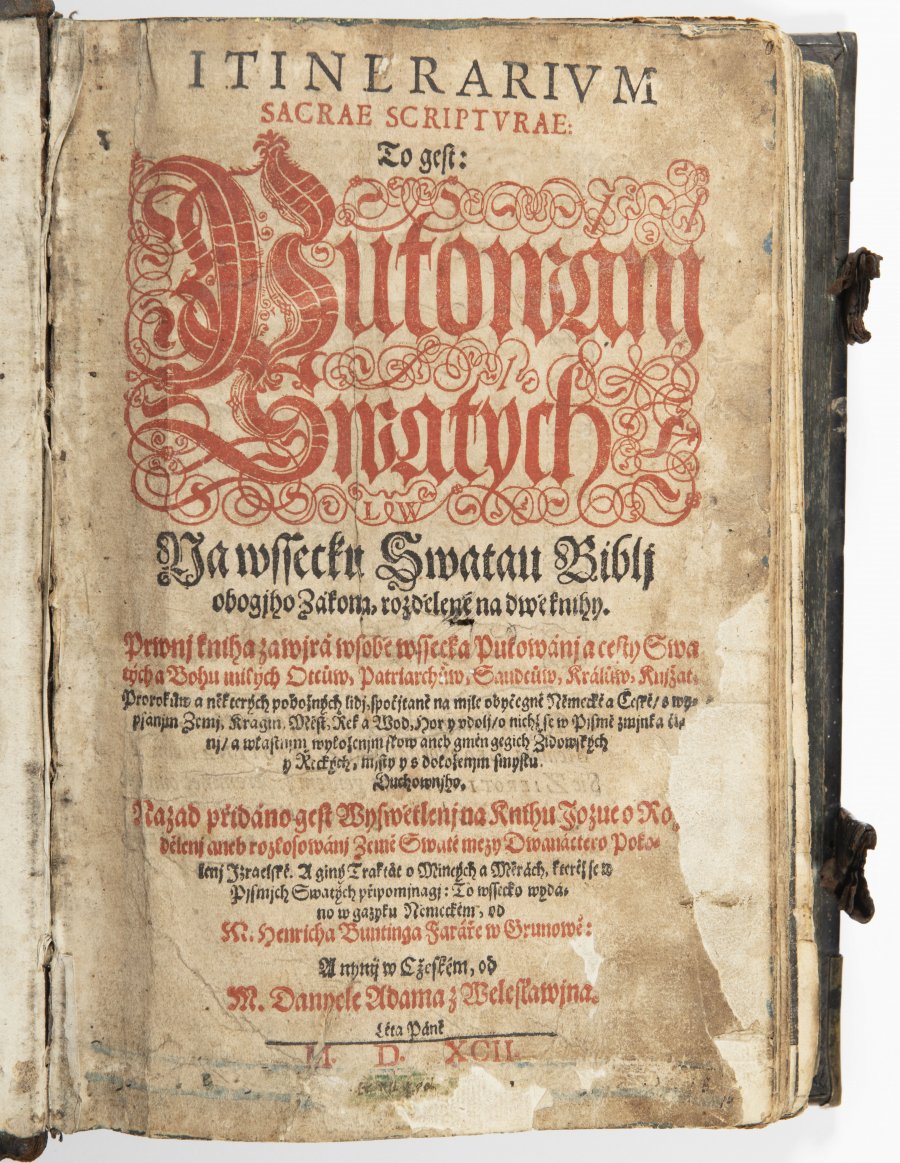 ITINERARIVM
SACRAE SCRIPTVRAE:
To gest:
Putowanj
Swatých
LW
Na wssecku Swatau Biblj
obogjho Zákona, rozdělené na dwě knihy.
Prwnj kniha zawjrá w sobě wssecka Putowánj a cesty Swa
tých a Bohu milých Otcůw, Patriarchůw, Saudcůw, Králůw, Knjžat,
Prorokůw a některých pobožných lidj, spočjtané na mjle obyčegné Německé a České/ s wy-
psánjm Zemj, Kragin, Měst, Řek a Wod, Hor y vdolj/ o nichž se w Pjsmě zmjnka či-
nj/ a wlastnjm wyloženjm slow aneb gmén gegich Židowských
y Řeckých, mjsty y s doloženjm smyslu
Duchownjho.
Nazad přidáno gest Wyswětlenj na Knihu Jozue o Ro-
dělenj aneb rozlosowánj Země Swaté mezy Dwanáctero Poko-
lenj Izraelské. A giný Traktát o Mincých a Měrách, kteréž se w
Pjsmjch Swatých připomjnagj: To wssecko wydá-
no w gazyku Německém, od
M. Henricha Buntinga Faráře w Grunowě:
A nynj w Cžeském, od
M. Danyele Adama z Weleslawjna.
Léta Páně
M. D. XCII.